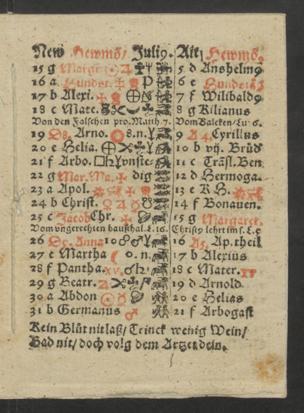 New Hewmo̅/ Julig. Alt Hewmo̅.
15 g Marg. 5 d Anshelmg
16 a 6 e
17 b Alexi. 7 f Wilibaldg
18 c Mare. 8 g Kilianus
Von den Falschen pro. Matth. 7. Vom
19 D8. Arno. 8. n. 9 A4. Cyrillus
20 e Helia. 10 b vij. Brüd
21 f Arbo. 11 c Träsl. Ben
22 g Mar. Ma. dig 12 d Hermoga.
23 a Apol. 13 e K H.
24 b Christ. 14 f Bonauen.
25 c Jacob Chr. 15 g Margaret.
Vom vngerechten haußhal. L. 16. Christg lehrt im
26 D9. Anna 10 16 A5. Ap. theil
27 e Martha o. n. 17 b Alexius
28 f Pantha. xv. 18 c Mater.
29 g Beatr. 19 d Arnold
30 a Abdon 20 e Helias
31 b Germanus 21 f Arbogast
Kein Blüt nit laß/ Trinck wenig Wein/
Bad nit/ doch volg dem Artzet dein.